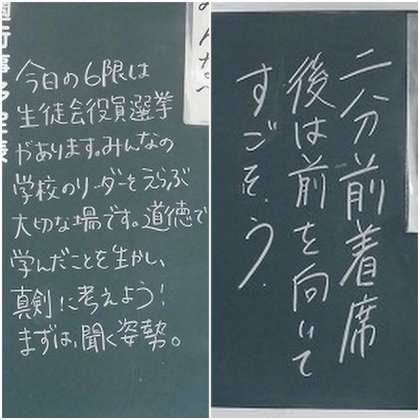 今日の6限は
生徒会役員選挙
があります。みんなの
学校のリーダーをえらぶ
大切な場です。道徳で
学んだことを生かし、
真剣に考えよう！
まずは、聞く姿勢。
二分前着席
後は前を向いて
すごそう。